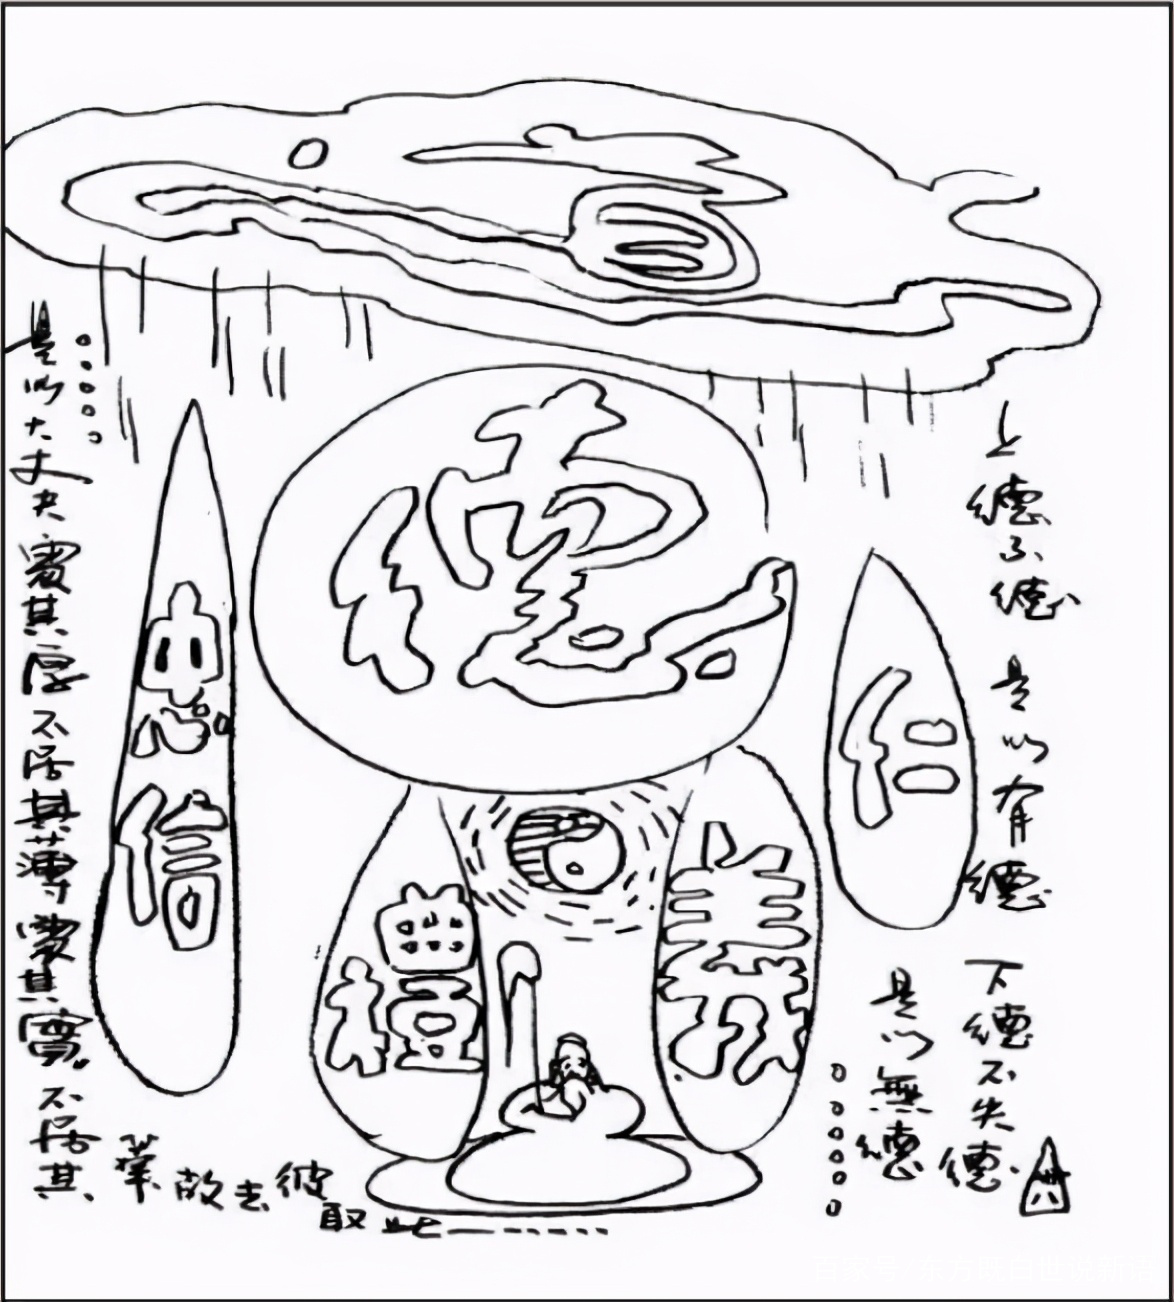 上德不德
是以有德
下德不失德
是以無德
德
仁
義
禮
忠信
是以大丈夫處其厚不居其薄處其實不居其
華故去彼
取此